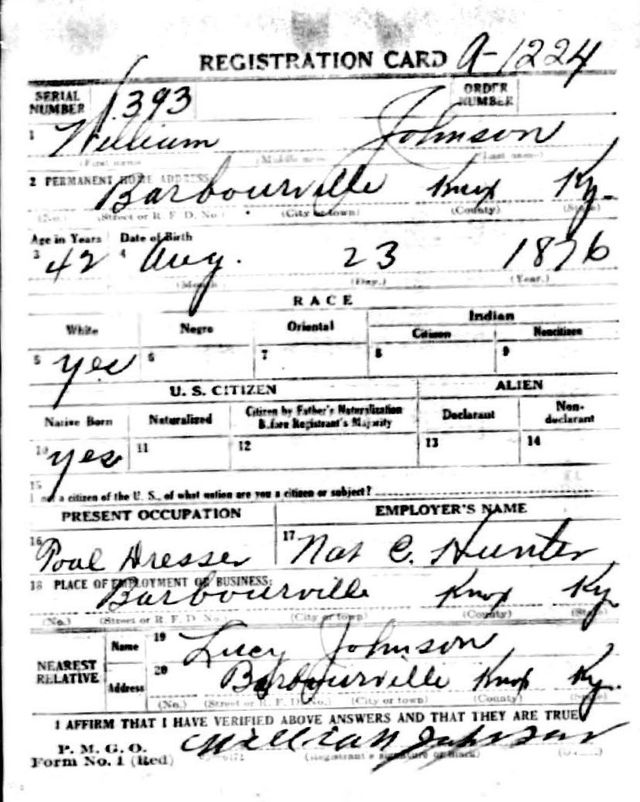 REGISTRATION CARD A-1224
SERIAL NUMBER 1393 ORDER NUMBER
1 William Johnson
(First name) (Middle name) (Last name)
2 PERMANENT HOME ADDRESS:
Barbourville Knox Ky.
(No.) (Street or R. F. D. No.) (City or town) (County) (State)
Age in Years Date of Birth
3 42 4 Aug. 23 1876
(Month) (Day.) (Year.)
RACE
White Negro Oriental Indian
Citizen Noncitizen
5 yes 6 7 8 9
U. S. CITIZEN ALIEN
Native Born Naturalized Citizen by Father's Naturalization Before Registrant's Majority Declarant Non-declarant
10 yes 11 12 13 14
15
If not a citizen of the U. S., of what nation are you a citizen or subject?
PRESENT OCCUPATION EMPLOYER'S NAME
16 Tool Dresser 17 Nat C. Hunter
18 PLACE OF EMPLOYMENT OR BUSINESS:
Barbourville Knox Ky
(No.) (Street or R. F. D. No.) (City or town) (County) (State)
NEAREST RELATIVE
Name 19 Lucy Johnson
Address 20 Barbourville Knox Ky.
(No.) (Street or R. F. D. No.) (City or town) (County) (State)
I AFFIRM THAT I HAVE VERIFIED ABOVE ANSWERS AND THAT THEY ARE TRUE
P. M. G. O.
Form No. 1 (Red) William Johnson
(Registrant's signature or mark)